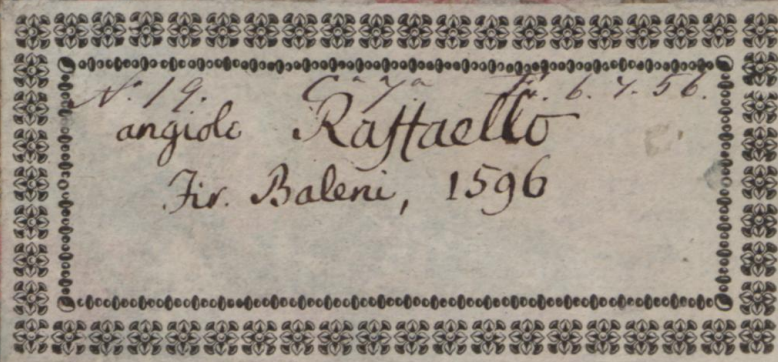 N. 19. Caya Fir. 6. 7. 56.
angiolo Raffaello
Fir. Baleni, 1596